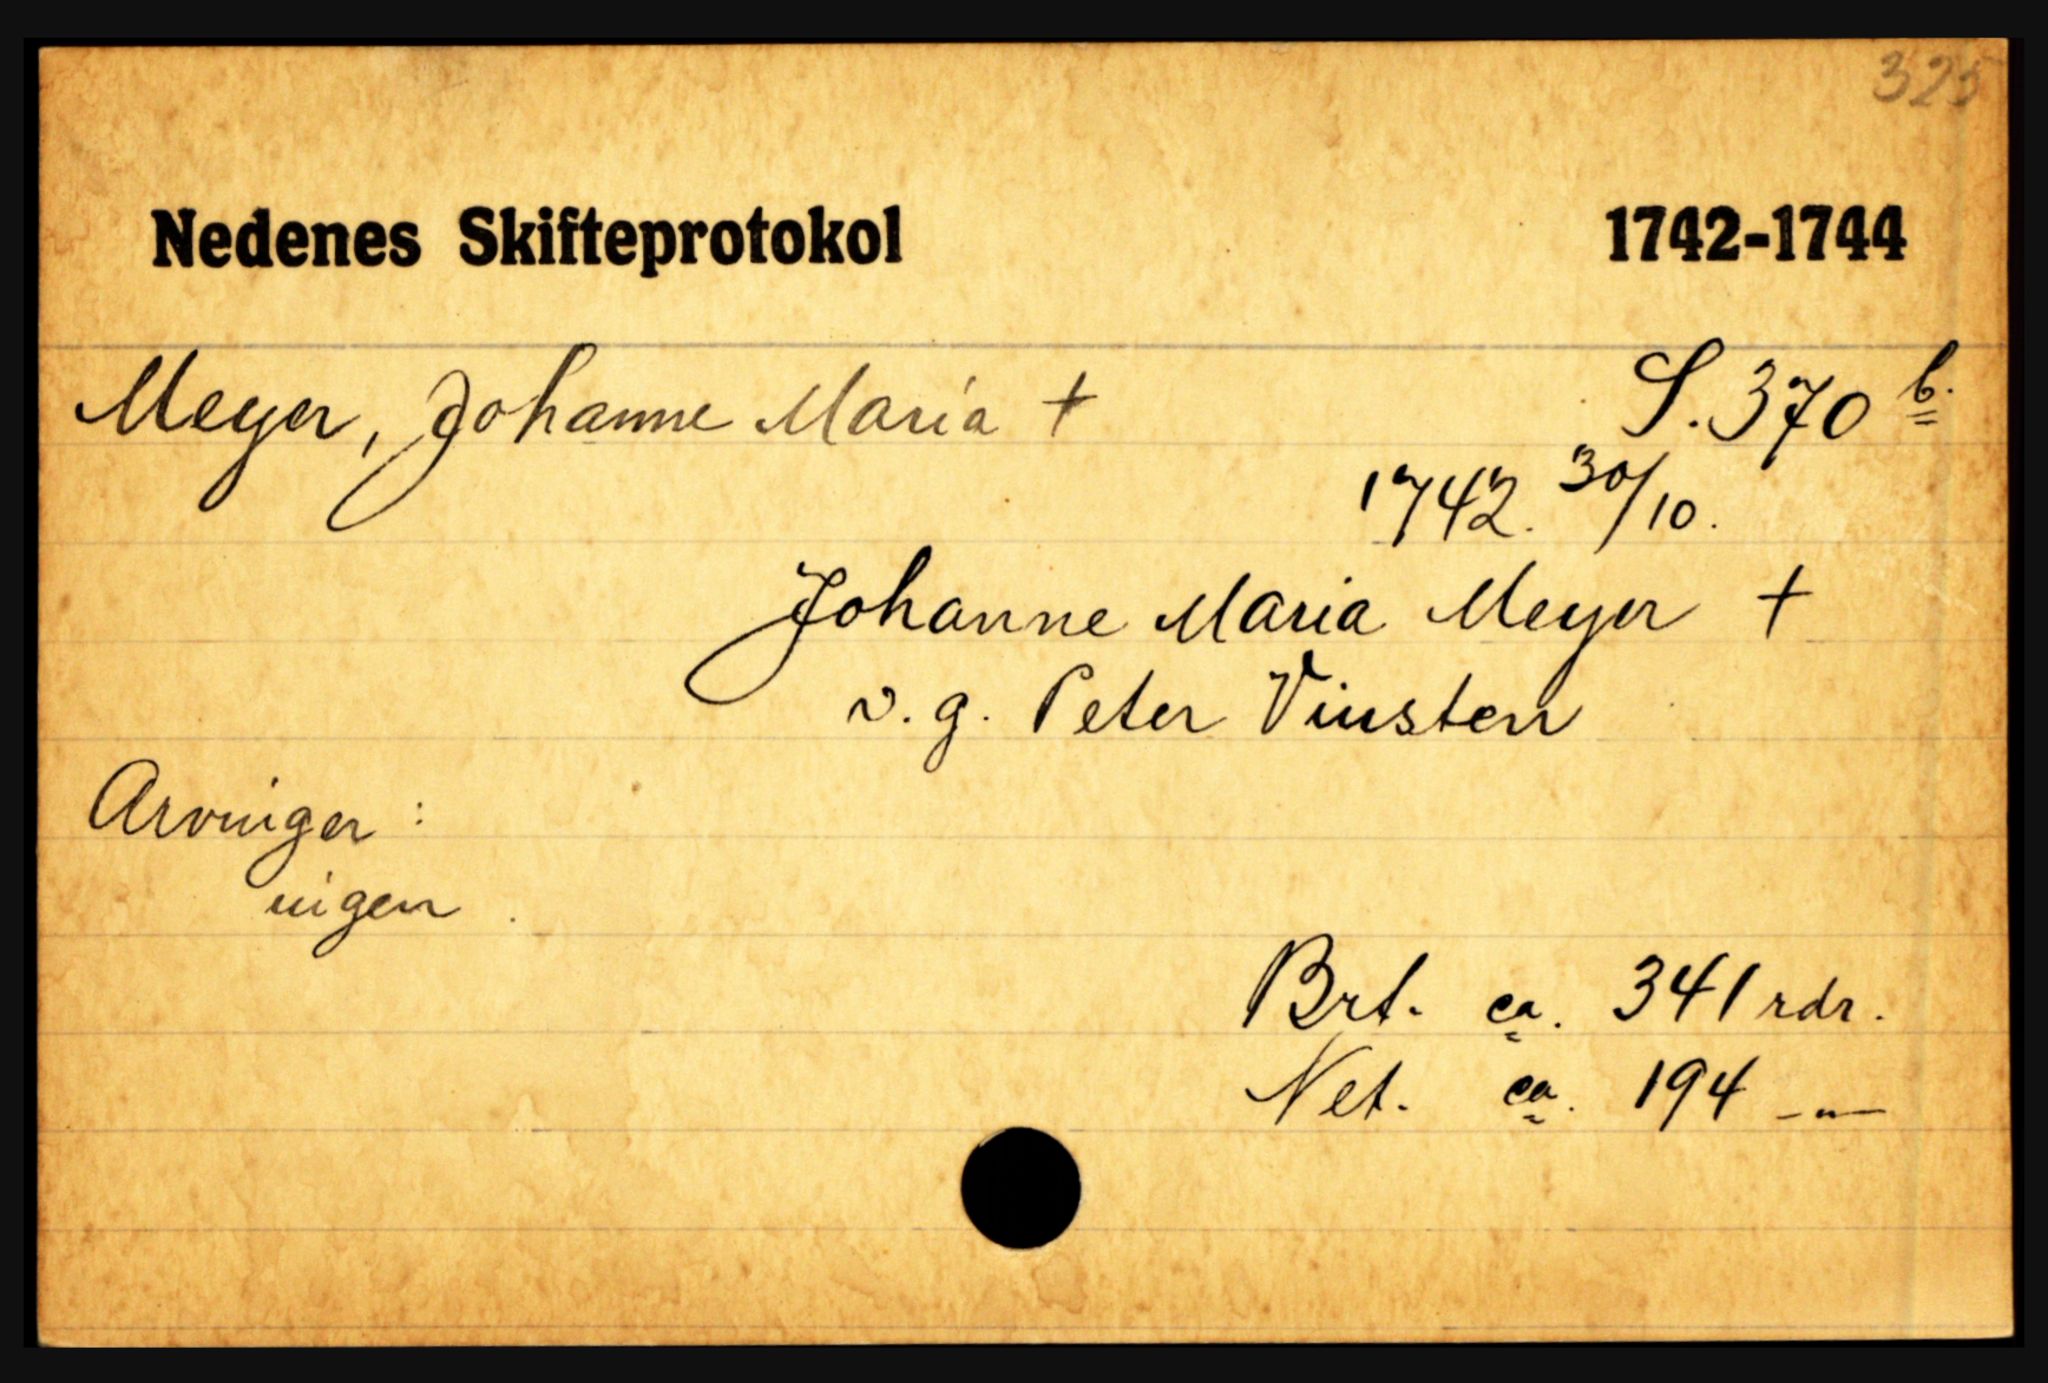 325
Nedenes Skifteprotokol 1742-1744
Meyer, Johanne Maria + S. 370 b.
1742. 30/10.
Johanne Maria Meyer +
v. g. Peter Vinsten
Arvinger :
ingen.
Brt. ca. 341 rdr.
Net. ca. 194 -"-